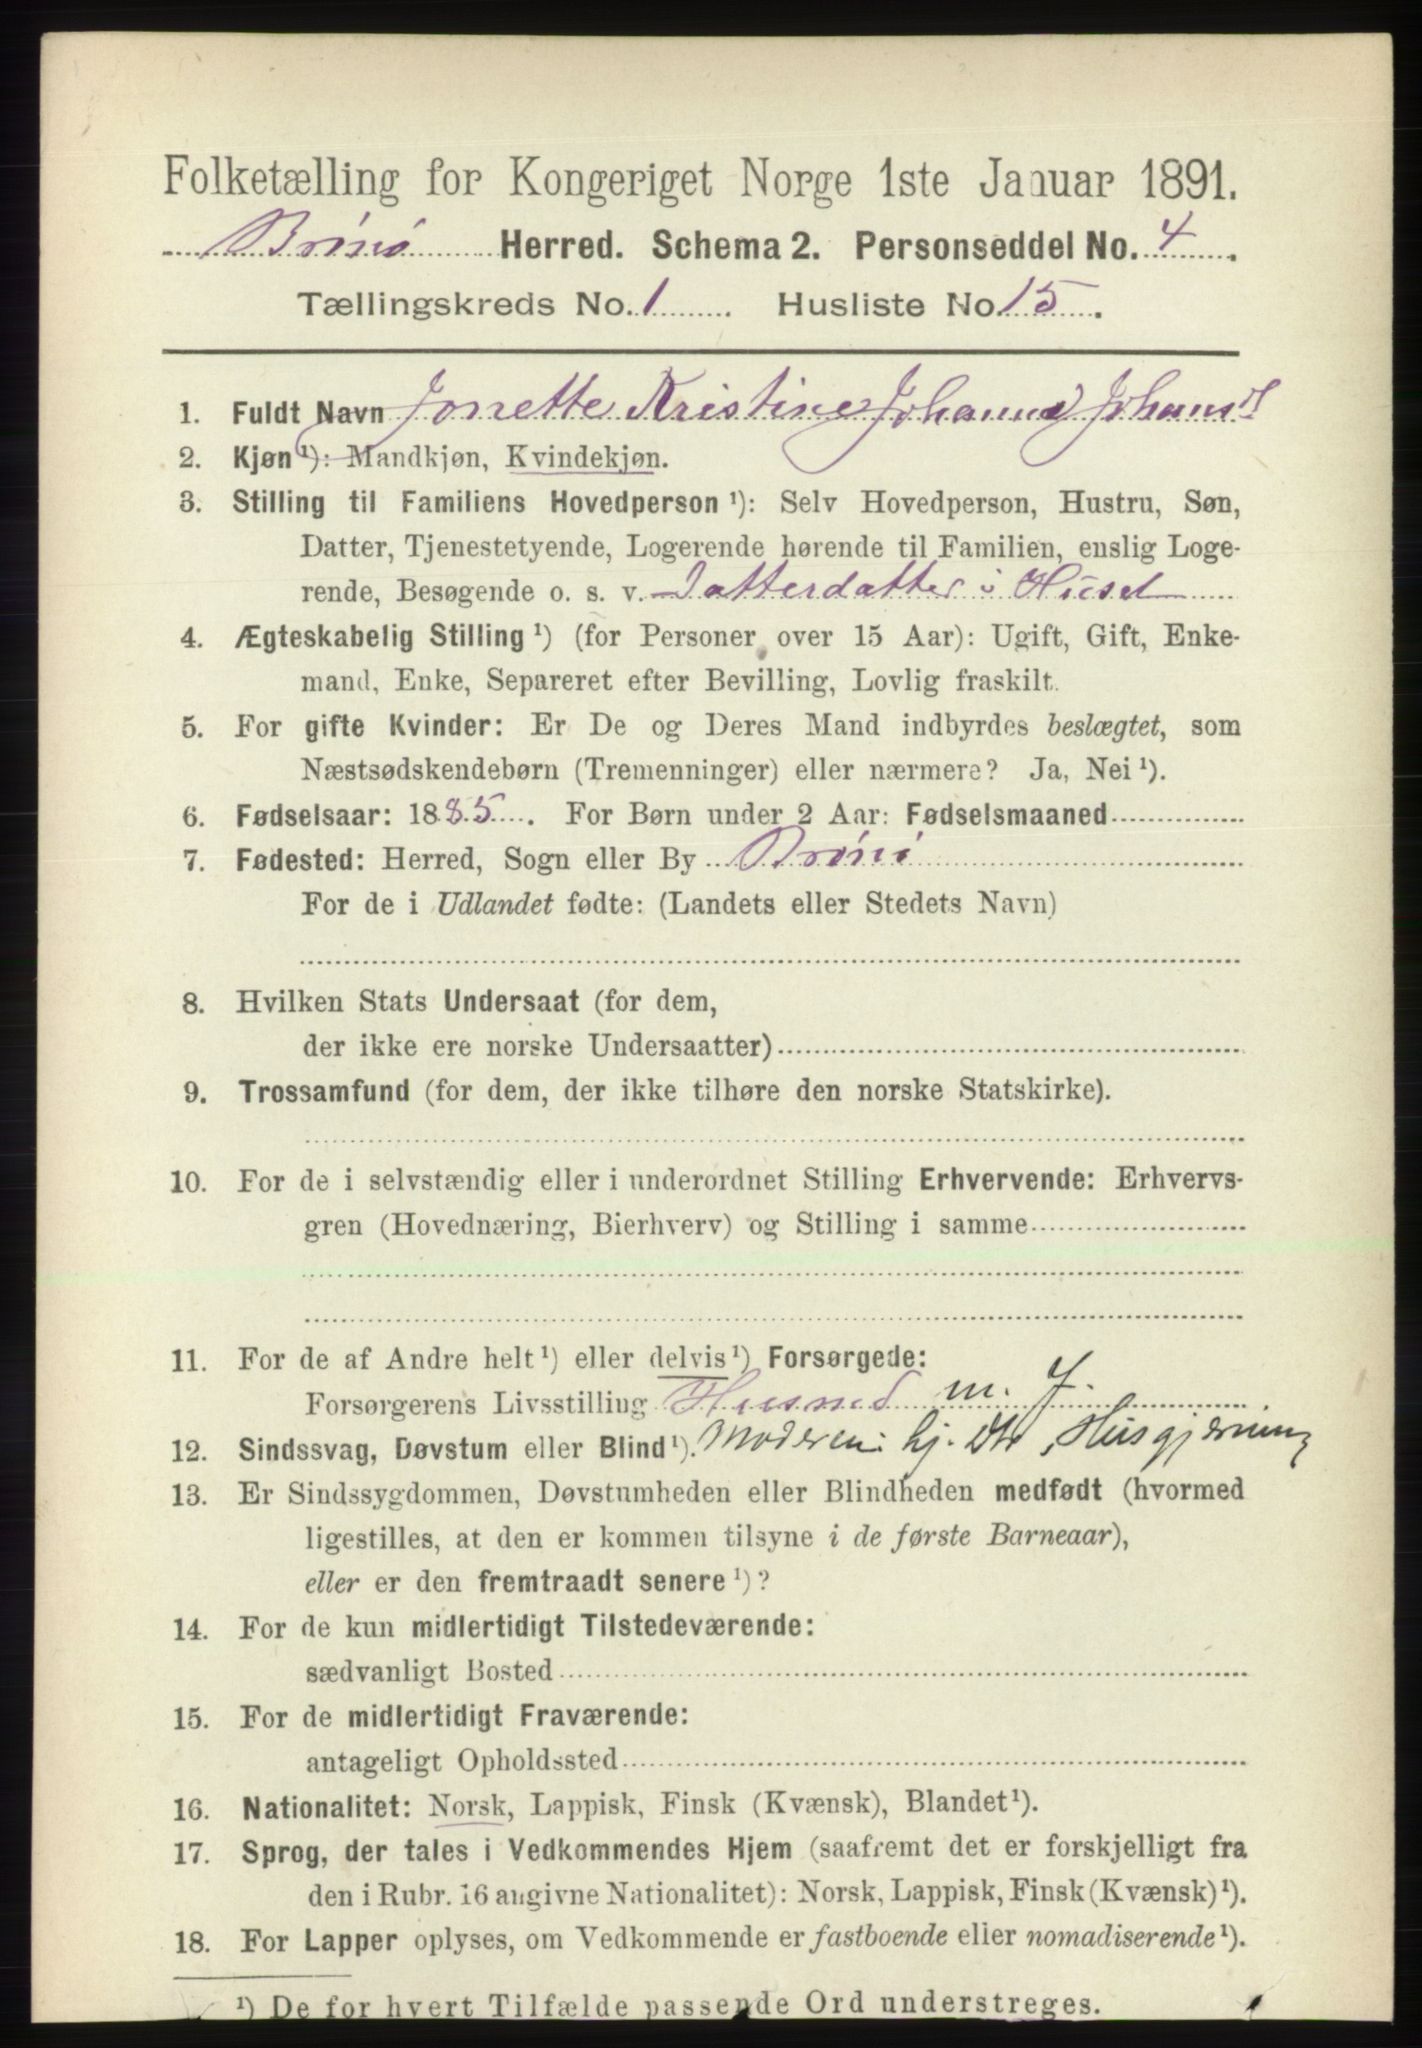 Folketælling for Kongeriget Norge 1ste Januar 1891.
Brönö Herred. Schema 2. Personseddel No. 4.
Tællingskreds No. 1 Husliste No. 15.
1. Fuldt Navn Jonette Kristine Johanna Johansd
2. Kjøn¹): Mandkjøn, Kvindekjøn.
3. Stilling til Familiens Hovedperson¹): Selv Hovedperson, Hustru, Søn,
Datter, Tjenestetyende, Logerende hørende til Familien, enslig Loge-
rende, Besøgende o. s. v. Datterdatter i Huset
4. Ægteskabelig Stilling¹) (for Personer over 15 Aar): Ugift, Gift, Enke-
mand, Enke, Separeret efter Bevilling, Lovlig fraskilt.
5. For gifte Kvinder: Er De og Deres Mand indbyrdes beslægtet, som
Næstsødskendebørn (Tremenninger) eller nærmere? Ja, Nei¹).
6. Fødselsaar: 1885. For Børn under 2 Aar: Fødselsmaaned
7. Fødested: Herred, Sogn eller By Brönö
For de i Udlandet fødte: (Landets eller Stedets Navn)
8. Hvilken Stats Undersaat (for dem,
der ikke ere norske Undersaatter)
9. Trossamfund (for dem, der ikke tilhøre den norske Statskirke).
10. For de i selvstændig eller i underordnet Stilling Erhvervende: Erhvervs-
gren (Hovednæring, Bierhverv) og Stilling i samme
11. For de af Andre helt¹) eller delvis¹) Forsørgede:
Forsørgerens Livsstilling Husmd m. J.
12. Sindssvag, Døvstum eller Blind¹). Moderen: hj. Dtr, Husgjerning
13. Er Sindssygdommen, Døvstumheden eller Blindheden medfødt (hvormed
ligestilles, at den er kommen tilsyne i de første Barneaar),
eller er den fremtraadt senere¹)?
14. For de kun midlertidigt Tilstedeværende:
sædvanligt Bosted
15. For de midlertidigt Fraværende:
antageligt Opholdssted
16. Nationalitet: Norsk, Lappisk, Finsk (Kvænsk), Blandet¹).
17. Sprog, der tales i Vedkommendes Hjem (saafremt det er forskjelligt fra
den i Rubr. 16 angivne Nationalitet): Norsk, Lappisk, Finsk (Kvænsk)¹).
18. For Lapper oplyses, om Vedkommende er fastboende eller nomadiserende¹).
¹) De for hvert Tilfælde passende Ord understreges.